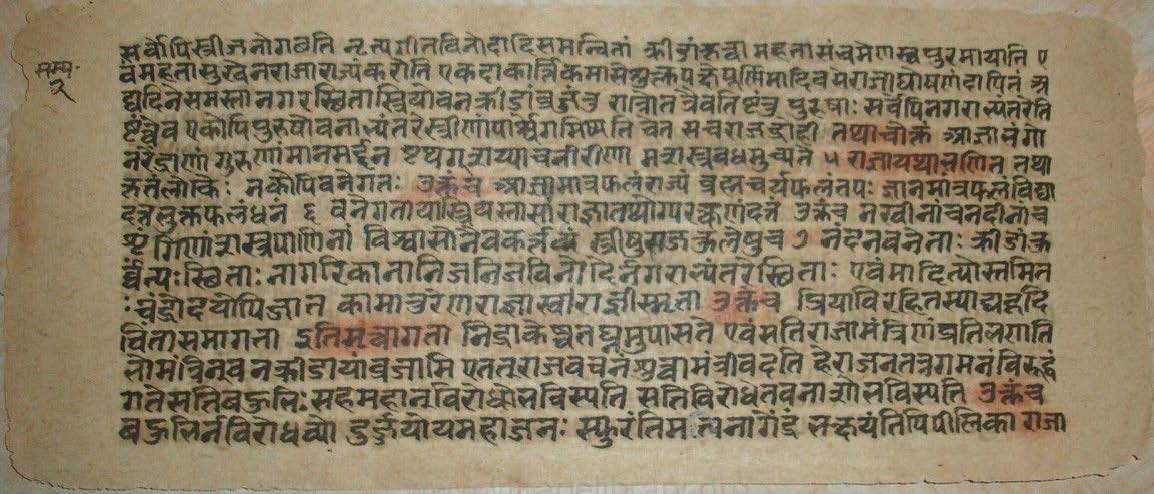 सर्वोपिस्त्रीजनोगछति नृत्यगीतविनोदादिसमन्वितां क्रीडांकृत्वा महता संभ्रमेण स्वपुरमायाति ए
वं महतासुखेनराजाराज्यंकरोति एकदाकार्त्तिकमासेशुक्लपक्षेपूर्णिमादिवसेराजाघोषणंदापितं अ
द्यदिनेसमस्तानगरस्थितास्त्रियोवनक्रीडांव्रजंतु रात्रौतत्रैवतिष्टंतु पुरुषाः सर्वेपिनगराभ्यंतरेति
ष्टंत्वेव एकोपिपुरुषोवनाभ्यंतरेस्त्रीणांपार्श्वेगमिष्यति चेत् सचराजद्रोही तथाचोक्तं आज्ञाभंगो
नरेंद्राणां गुरूणांमानमर्द्दनं मशस्त्रवधमुच्यते ५ राज्ञायथाभणितं तथा
कृतंलोकैः नकोपिवनेगतः उक्तंच आज्ञामात्रफलंराज्यं ब्रह्मचर्यफलंतपः ज्ञानमात्रफलंविद्या
दत्तभुक्तफलंधनं ६ वनेगतायास्त्रियस्तासांराज्ञा उक्तंच नखीनांचनदीनांच
शृंगिणांशस्त्रपाणिनां विश्वासोनैवकर्त्तव्यः स्त्रीषुराजकुलेषुच ७ नंदनवनेताः क्रीडांकृ
त्वेत्यःस्थिताः नागरिकानानिजनिजविनोदेननगराभ्यंतरेस्थिताः एवंमादित्योस्तमित
ःचंद्रोदयोपिजात कामातुरेणराज्ञास्वीराज्ञीस्मृता उक्तंच प्रियाविरहितस्याद्यहृदि
चिंतासमागता इतिमत्वागता निद्राकेकृतघ्नमुपासते एवंसतिराजामंत्रिणंप्रतिभणति
भोमंत्रिन्वनक्रीडायांव्रजामि एतत्राजवचनंश्रुत्वामंत्रीवदति हेराजन्तत्रगमनंविरुद्धं
गतेसतिबहुभिःसहमहान्विरोधोभविस्यति सतिविरोधेतवनाशोभविस्यति उक्तंच
बहुभिर्नविरोधव्यो दुर्ज्जयोयंमहाजनः स्फुरंतिमपिनागेंद्रं भक्षयंतिपिपीलिका राजा